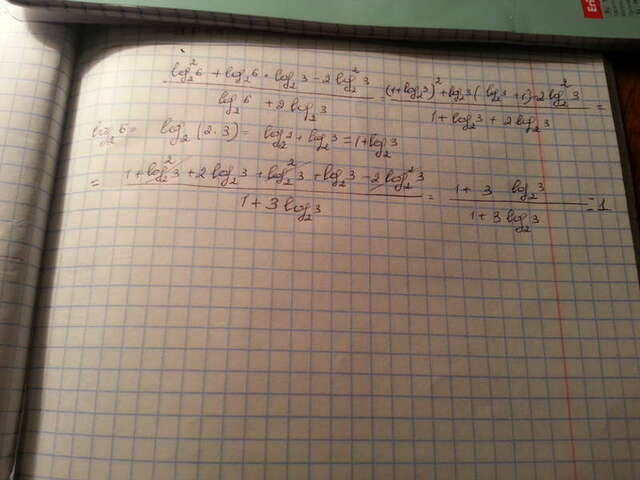 (log₂²6 + log₂6 · log₂3 - 2log₂²3)/(log₂6 + 2log₂3) = ((1+log₂3)² + log₂3(log₂3+1) - 2log₂²3)/(1+log₂3+2log₂3) =
log₂6 = log₂(2·3) = log₂2 + log₂3 = 1+log₂3
= (1+log₂²3 + 2log₂3 + log₂²3 + log₂3 - 2log₂²3)/(1+3log₂3) = (1+3 log₂3)/(1+3log₂3) = 1